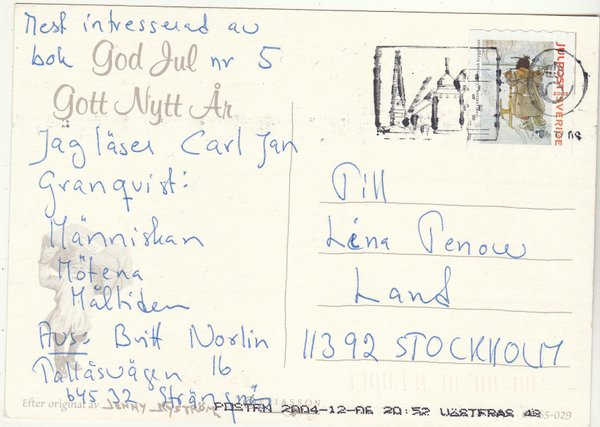 Mest intresserad av
bok nr 5
God Jul
Gott Nytt År
Jag läser Carl Jan
Granquist:
Människan
Mötena
Måltiden
Avs. Britt Norlin
Tallåsvägen 16
645 32 Strängnäs
Efter original av JENNY NYSTRÖM
POSTEN 2004-12-06 20:52 VÄSTERÅS
JULPOST SVERIGE
Till
Lena Penow
Land
11392 STOCKHOLM